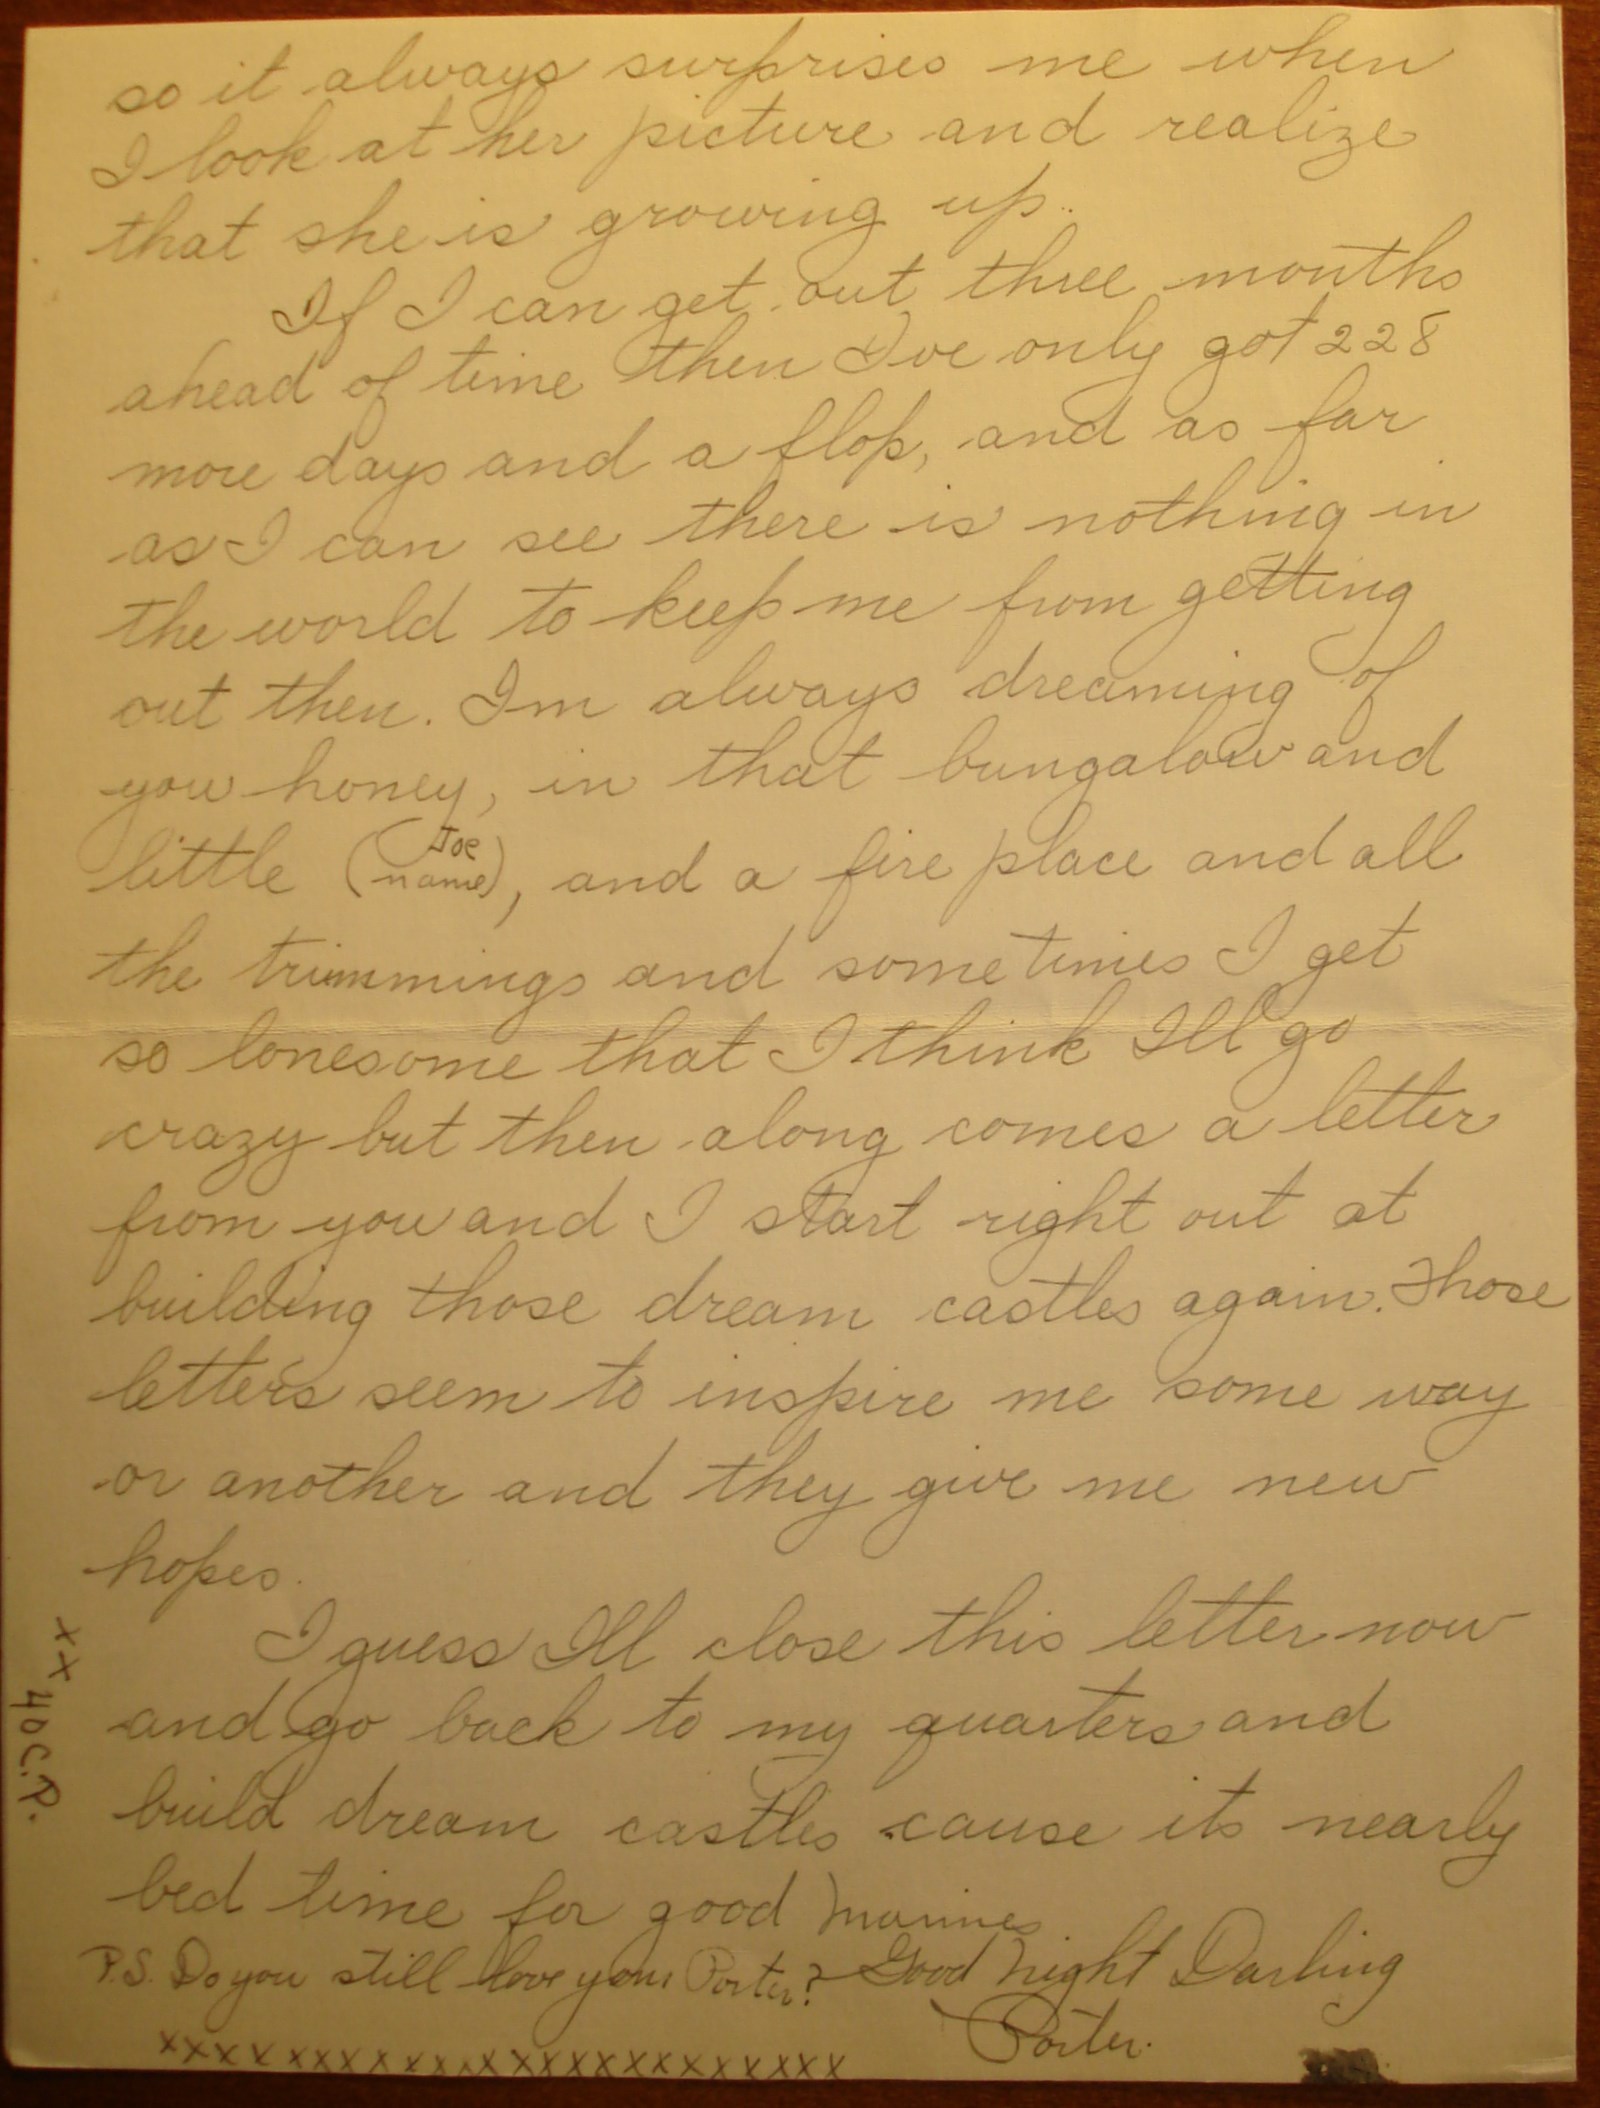 so it always surprises me when
I look at her picture and realize
that she is growing up.
If I can get out three months
ahead of time then I've only got 228
more days and a flop, and as far
as I can see there is nothing in
the world to keep me from getting
out then. Im always dreaming of
you honey, in that bungalow and
little (Joe
name), and a fire place and all
the trimmings and sometimes I get
so lonesome that I think Ill go
crazy but then along comes a letter
from you and I start right out at
building those dream castles again. Those
letters seem to inspire me some way
or another and they give me new
hopes.
I guess Ill close this letter now
and go back to my quarters and
build dream castles cause its nearly
bed time for good Marines
Good Night Darling
Porter.
P.S. Do you still love your Porter?
xxxxxxxxxxxxxxxxxxxxxxxxx
xx 40 C.P.